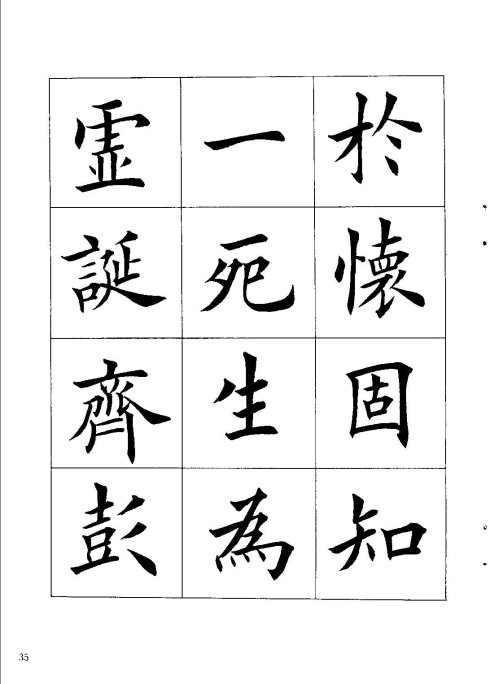 於懷固知
一死生為
虛誕齊彭
35